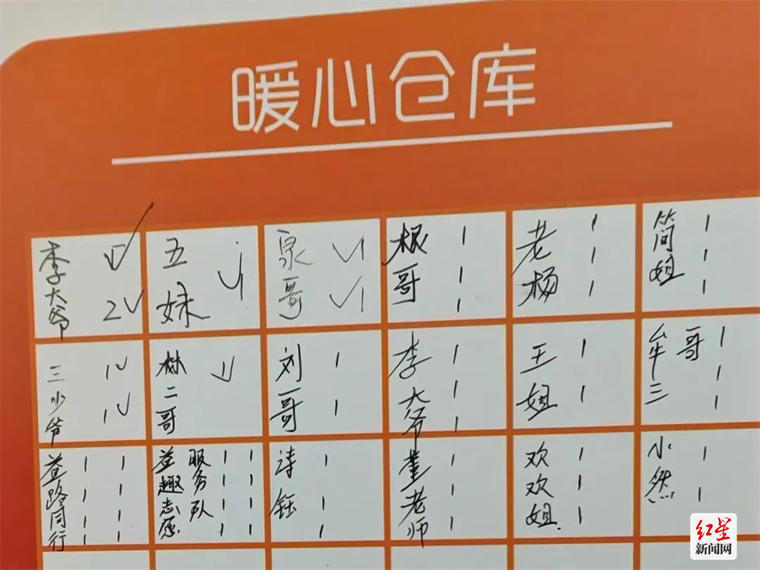 暖心仓库
李大爷 2
五妹
泉哥
根哥
老杨
简姐
三少爷
林二哥
刘哥
李大爷
王姐
牟三哥
益路同行
益趣志愿服务队
诗钰
董老师
欢欢姐
小然
红星
新闻网